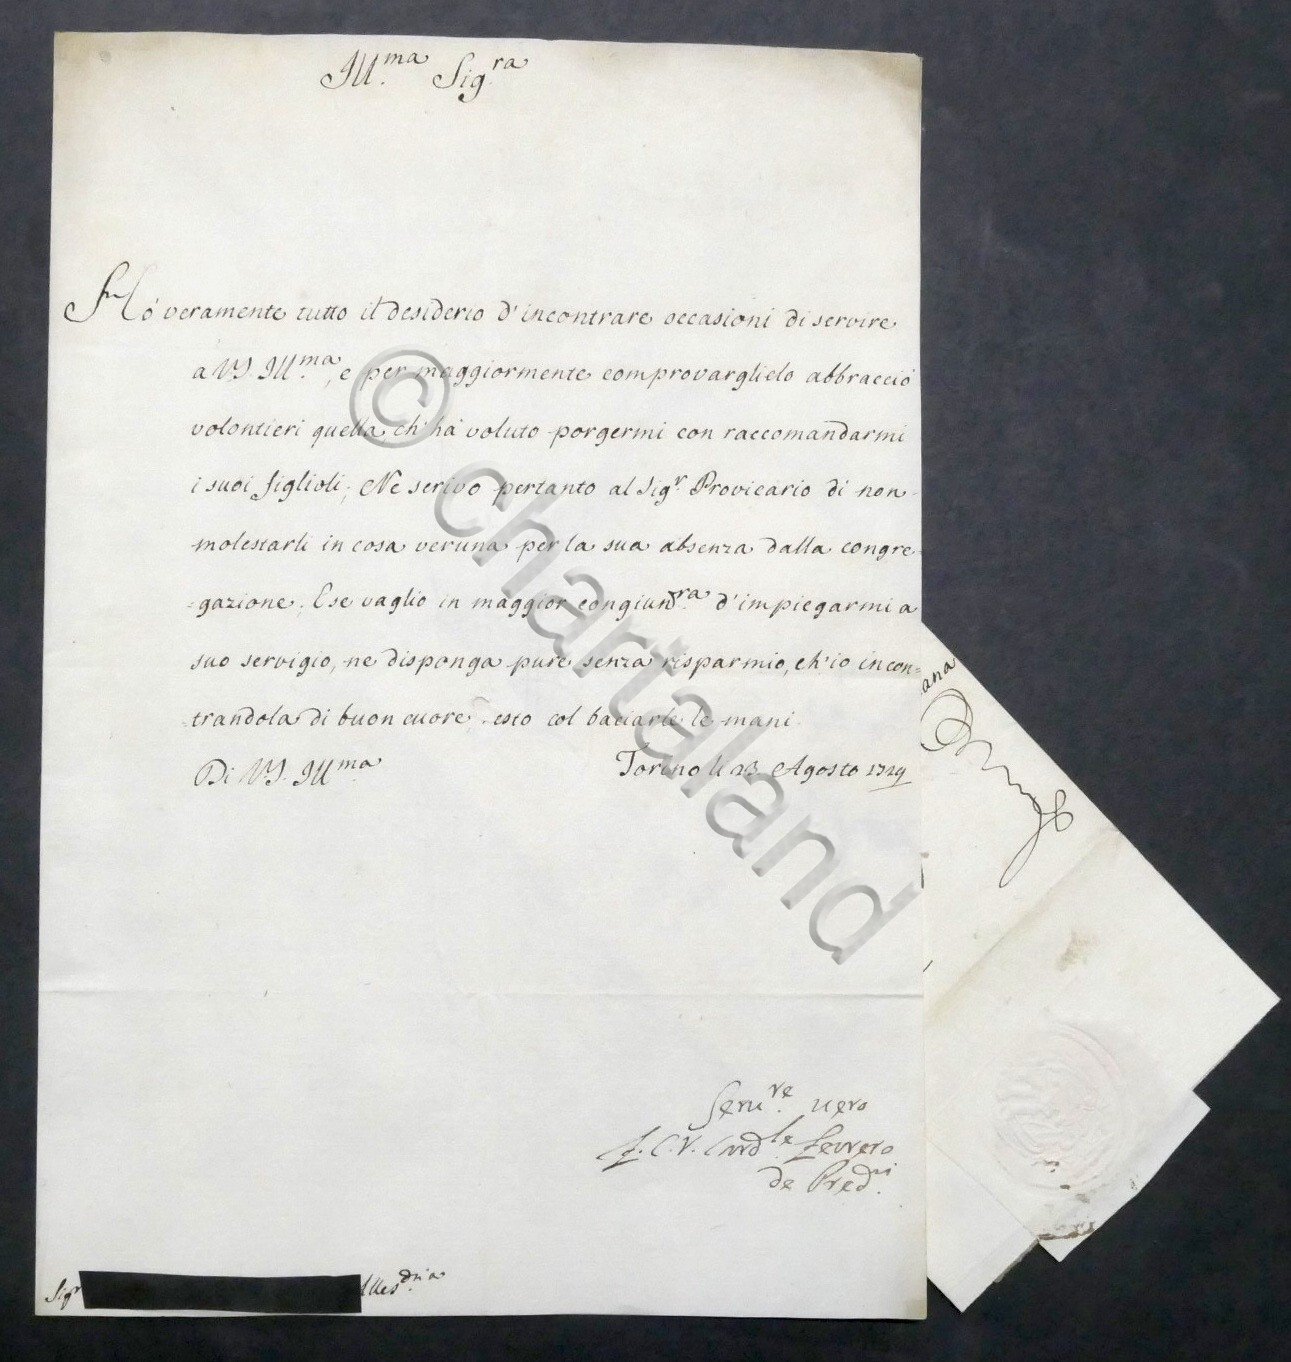 Ill.ma Sig.ra
Hò veramente tutto il desiderio d'incontrare occasioni di servire
a VS Ill.ma, e per maggiormente comprovarglielo abbracciò
volontieri quella ch'hà voluto porgermi con raccomandarmi
i suoi figlioli; Ne scrivo pertanto al Sig.r Provicario di non
molestarli in cosa veruna per la sua absenza dalla congre-
gazione; E se vaglio in maggior congiun.ra d'impiegarmi a
suo servigio, ne disponga pure senza risparmio, ch'io incon=
trandola di buon cuore, resto col baciarle le mani
Di VS. Ill.ma Torino li 23 Agosto 1729
Seru.re uero
Card.le Ferrero
Sig.r
© chartaland